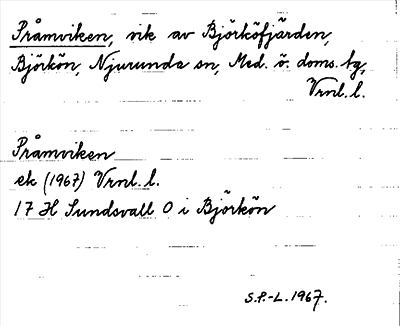 Pråmviken, vik av Björköfjärden,
Björkön, Njurunda sn, Med. ö. doms. tg,
Vrnl. l.
Pråmviken
ek (1967) Vrnl. l.
17 H Sundsvall O i Björkön
S.P.-L. 1967.